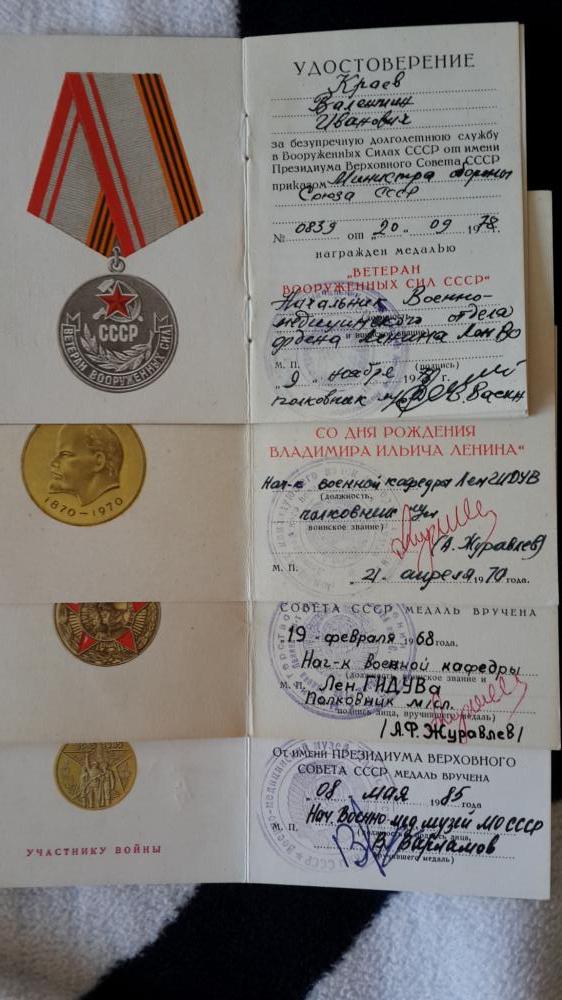 УДОСТОВЕРЕНИЕ
Краев
Валентин
Иванович
за безупречную долголетнюю службу
в Вооруженных Силах СССР от имени
Президиума Верховного Совета СССР
приказом Министра обороны
Союза ССР
№ 0839 от „20“ 09 1978 г.
награжден медалью
„ВЕТЕРАН
ВООРУЖЕННЫХ СИЛ СССР“
Начальник Военно-
медицинского отдела
ордена Ленина ЛенВО
и воинское звание)
М. П. (подпись)
„9“ ноября 19 г.
полковник м/с
СССР
ВЕТЕРАН ВООРУЖЕННЫХ СИЛ
СО ДНЯ РОЖДЕНИЯ
ВЛАДИМИРА ИЛЬИЧА ЛЕНИНА“
Нач-к военной кафедры ЛенГИДУВ
(должность,
полковник
воинское звание)
(А. Журавлев)
М. П. „21“ апреля 1970 года.
1870–1970
СОВЕТА СССР МЕДАЛЬ ВРУЧЕНА
„19“ февраля 1968 года.
Нач-к Военной кафедры
(должность, воинское звание и
М. П. Лен.ГИДУВа
Полковник м/сл.
подпись лица, вручившего медаль)
/А.Ф. Журавлев/
От имени ПРЕЗИДИУМА ВЕРХОВНОГО
СОВЕТА СССР МЕДАЛЬ ВРУЧЕНА
„08“ мая 1985 года
Нач. Военно-мед музей МО СССР
М. П. Варламов
вручившего медаль)
УЧАСТНИКУ ВОЙНЫ